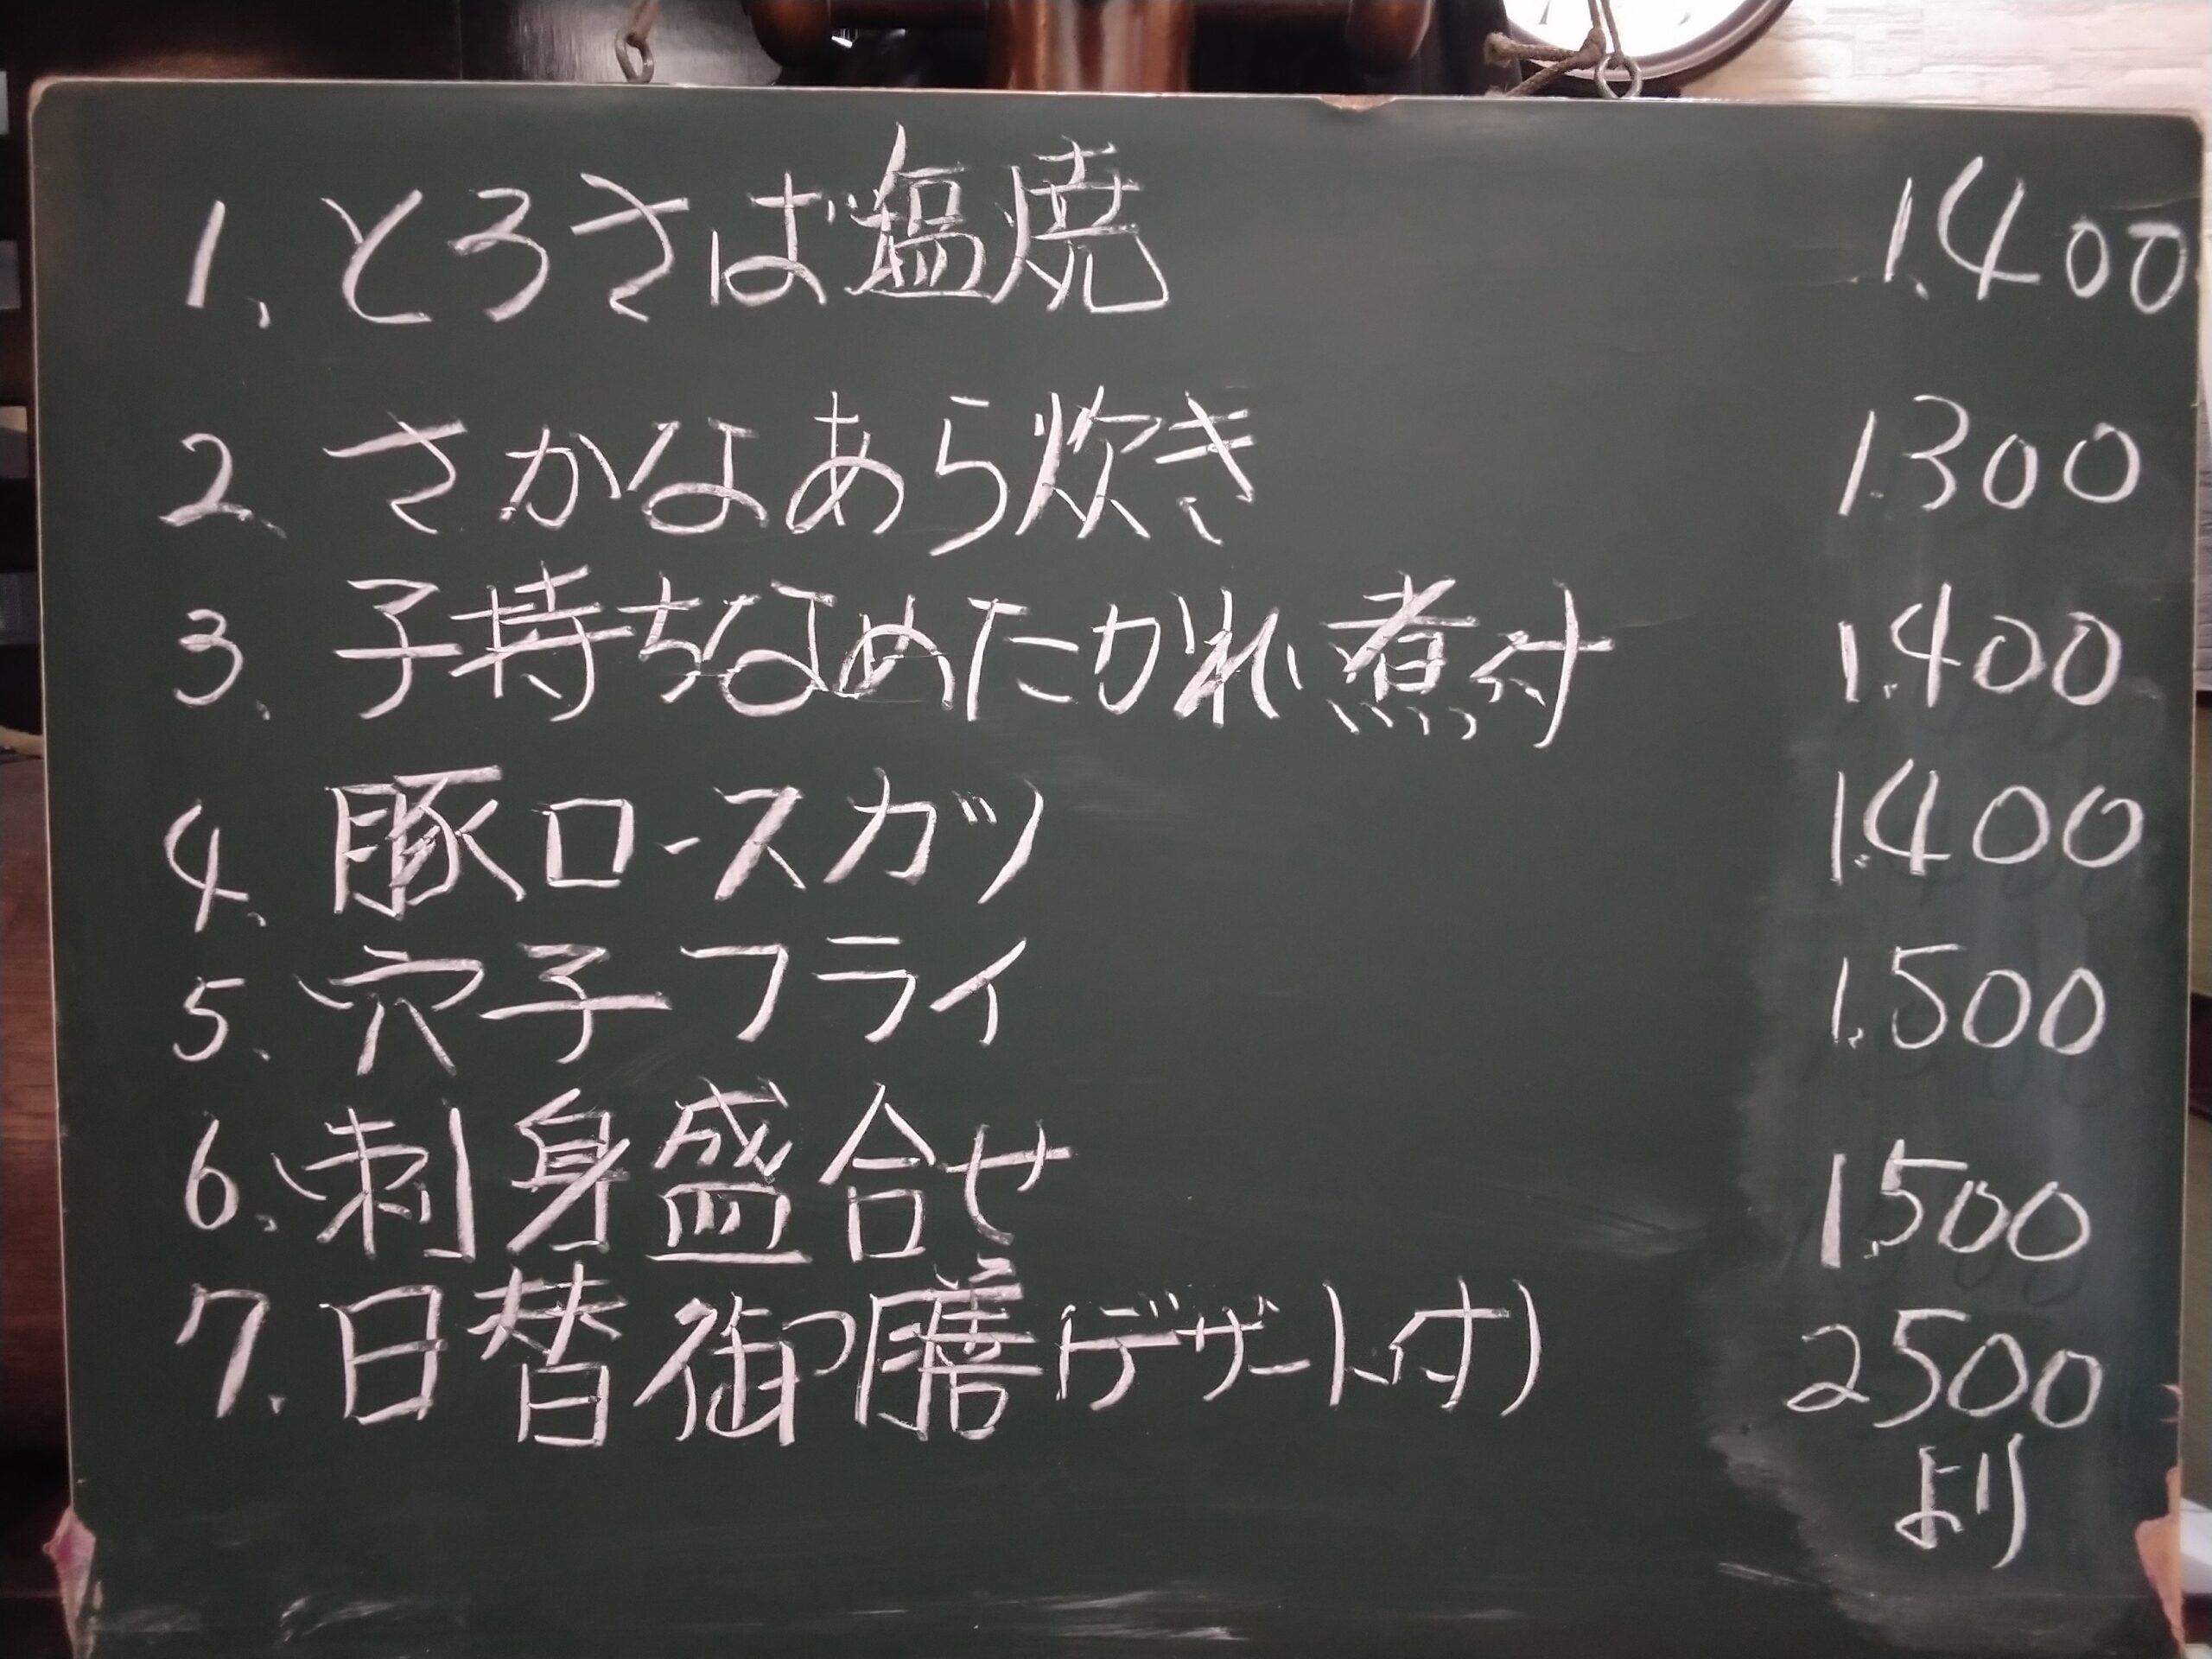 1、とろさば塩焼 1.400
2、さかなあら炊き 1.300
3、子持ちなめたがれい煮付 1.400
4、豚ロースカツ 1.400
5、穴子フライ 1.500
6、刺身盛合せ 1.500
7、日替御膳(デザート付) 2500
より